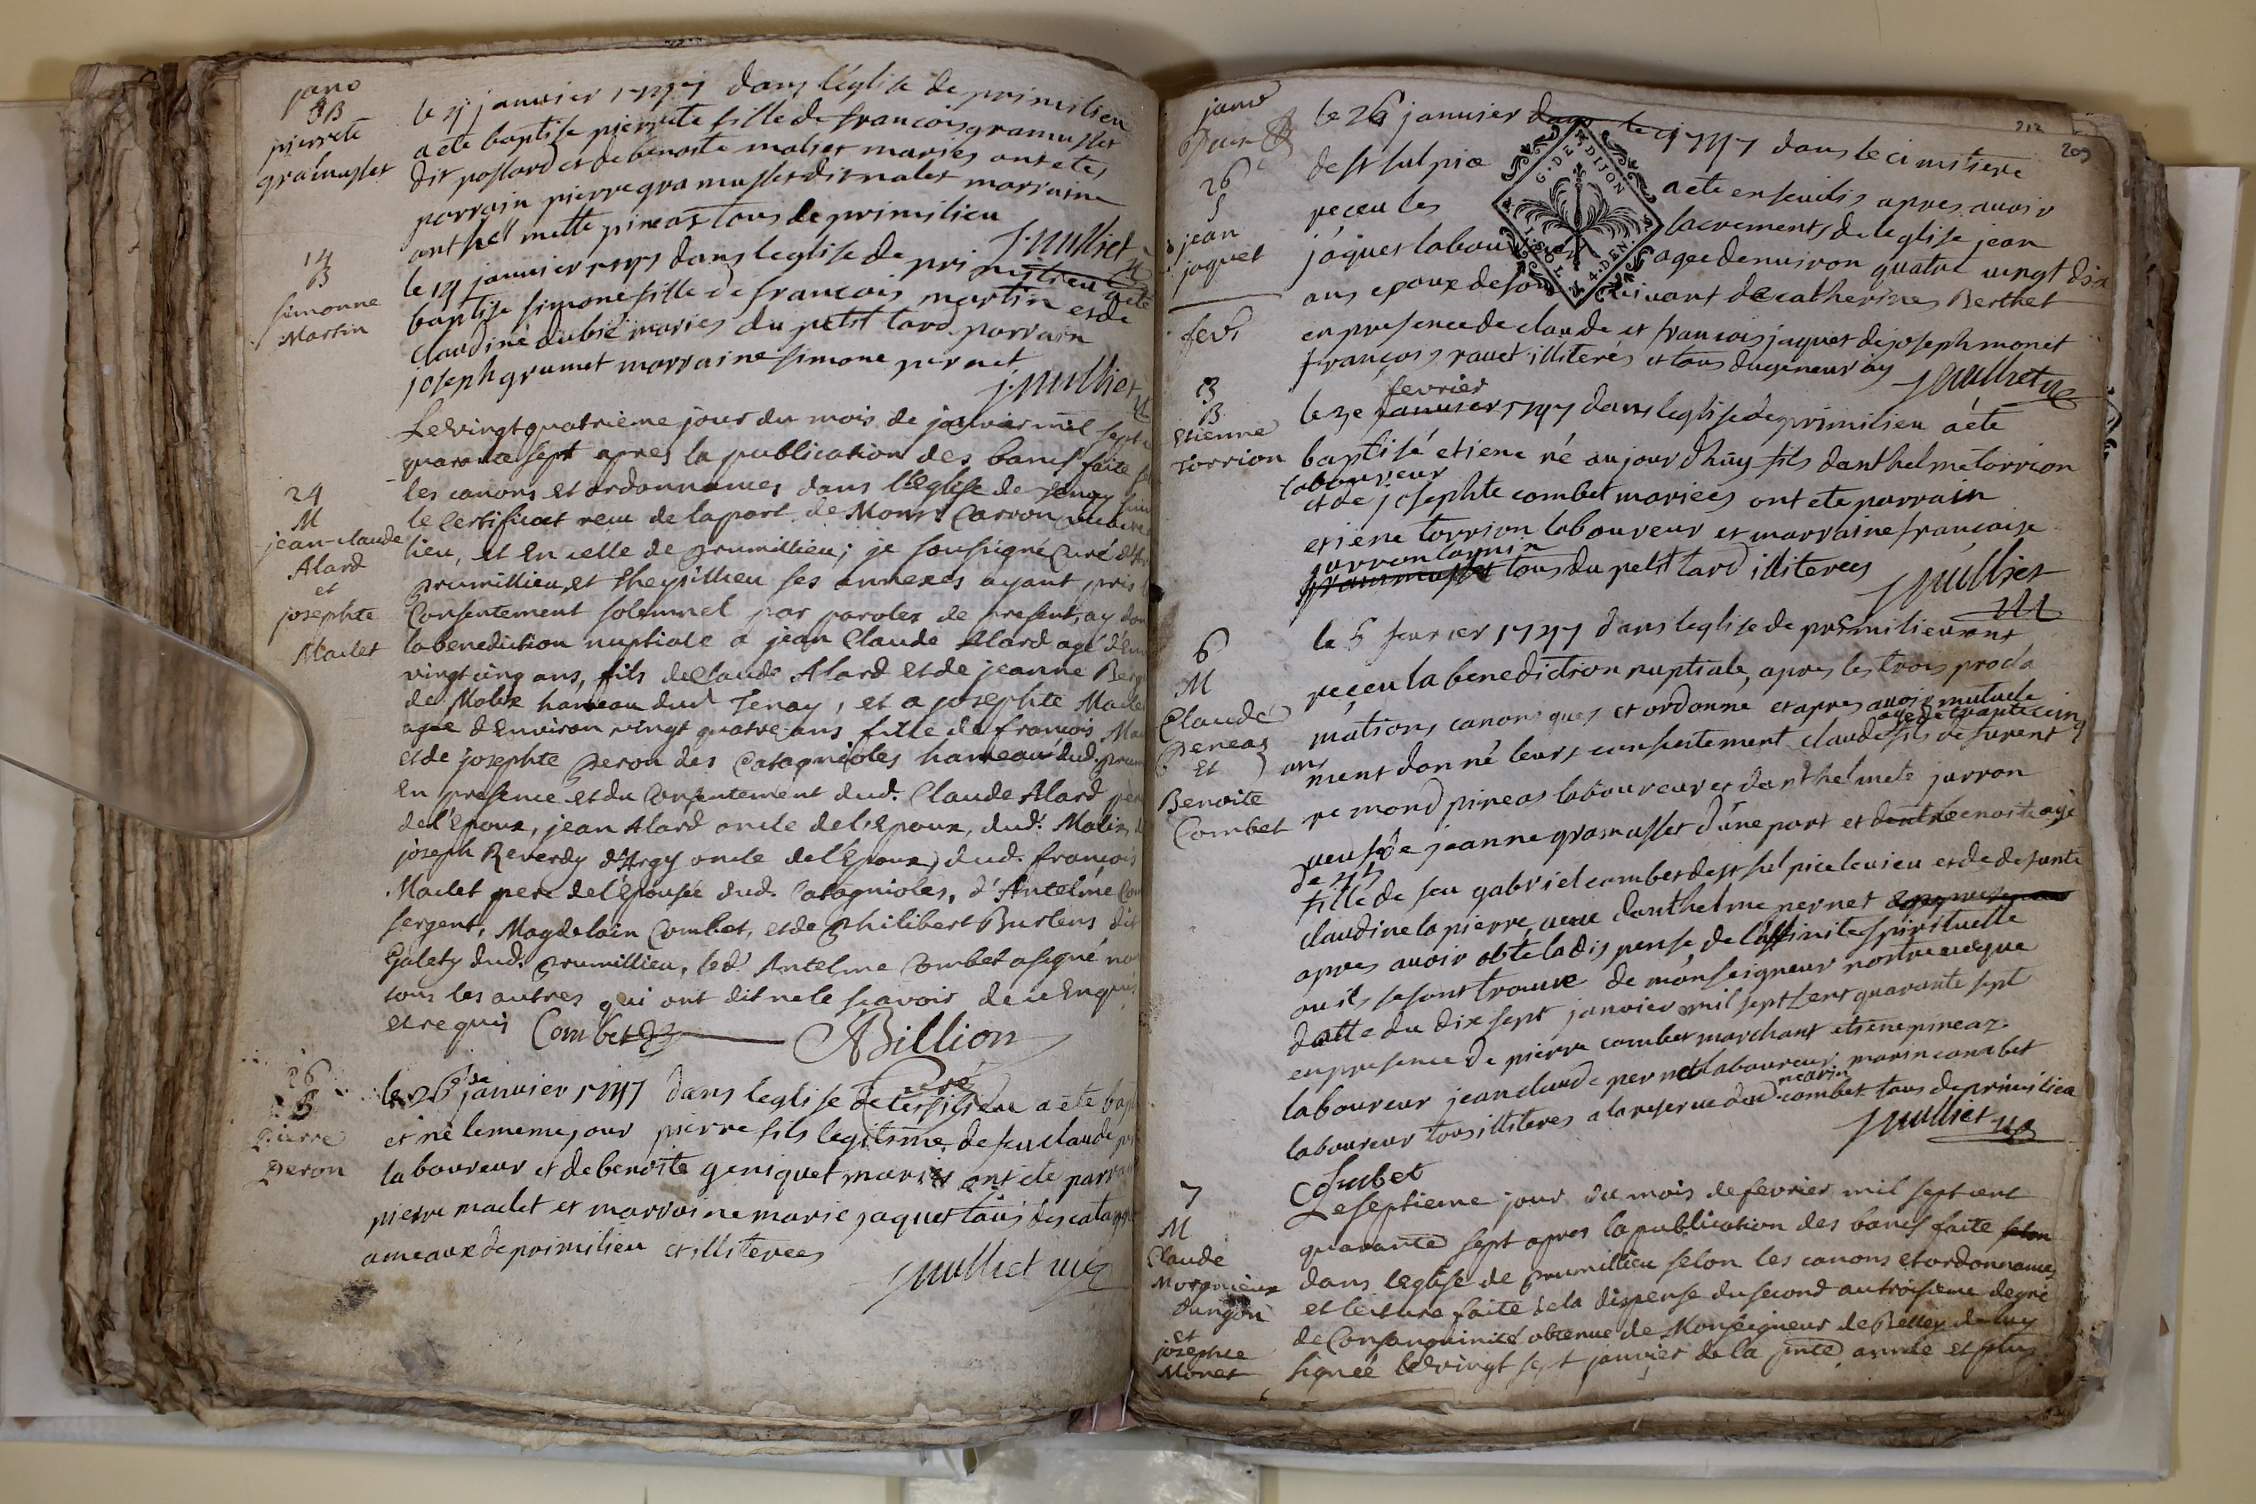 janv
8 B
pierrete
gramusset
le 8 janvier 1747 dans leglise de primilieu
a ete baptise pierrete fille de francois gramusset
dit possard et de benoite maries ont ete
parrain pierre gramusset dit marraine
anthelmette pineaz tous de primilieu
J. Mulliet
14
B
simonne
Martin
le 14 janvier 1747 dans leglise de primilieu a ete
baptise simone fille de francois martin et de
claudine dubié maries du petit tard parrain
joseph grumet marraine simone pernet
j. Mulliet
24
M
jean-claude
Alard
et
josephte
Maclet
Le vingt quatrieme jour du mois de janvier mil sept
quarante sept apres la publication des bancs faite
les canons et ordonnances dans l'Eglise de Tenay
le Certificat receu de la part de Monsr Carron vicaire
lieu, et En celle de prumillieu; je soussigné Curé
prumillieu, et Cheysillieu ses annexes ayant pris
Consentement solemnel par paroles de present, ay
la benediction nuptiale a jean Claude Alard agé
vingt cinq ans, fils de Claude Alard et de jeanne
de Malix hameau dud Tenay, et a josephte
agée d'Environ vingt quatre ans fille de françois
et de josephte peron des Catagnioles hameau dud.
En presence et du Consentement dud. Claude Alard
de l'Epoux, jean Alard oncle de l'Epoux, dud. Malix,
joseph Reverdy d'Argy oncle de l'Epoux, dud. françois
Maclet pere de l'Epousée dud. Catagnioles, d'Antelme
sergent, Magdelain Combet, et de philibert Burlens dit
Galety dud. prumillieu, led. Antelme Combet a signé
tous les autres qui ont dit ne le scavoir de ce Enquis
et requis Combet Billion
Curé
26
B
Pierre
Peron
le 26 janvier 1747 dans leglise a ete
et né le meme jour pierre fils legitime de feu claude
laboureur et de benoite geniquet maries ont ete
pierre maclet et marraine marie jaquet tous des
ameaux de primilieu et illiterees
Mulliet
janv
26
S
jean
jaquet
212
209
G. DE DIJON
4. DEN.
le 26 janvier 1747 dans le cimitiere
de st sulpice a ete enseveli apres avoir
reçeu les sacrements de leglise jean
jaquet agee denviron quatre vingt dix
ans epoux de son vivant de catherine Berthet
en presence de claude et francois jaquet de joseph monet
françois ravet illiterés et tous
Mulliet
fevr
3
B
Etienne
Torrion
fevrier
le 3e janvier 1747 dans leglise de primilieu a été
baptisé etiene né aujourdhuy fils danthelme torrion
laboureur
et de josephte combet mariees ont ete parrain
etiene torrion laboureur et marraine françoise
tous du petit tard illiterees
Mulliet
6
M
Claude
Peneaz
Et
Benoite
Combet
le 5 fevrier 1747 dans leglise de primilieu ont
reçeu la benediction nuptiale, apres les trois procla
mations canoniques et ordonne et apres avoir mutuele
agé de trante cinq
ans
ment donné leurs consentement claude fils de
remond pineas laboureur et danthelmete jarron
veuf de jeanne gramusset d'une part et benoite agé
fille de feu gabriel combet de st sulpice le vieu et de defunte
claudine lapierre, veuve danthelme pernet
apres avoir obte la dispense de laffinite spirituelle
ou ils se sont trouve de monseigneur nostre eveque
datte du dix sept janvier mil sept sent quarante sept
en presence de pierre combet marchant etiene pineaz
laboureur jean claude pernet laboureur marin combet
laboureur tous illiteres a la reserve dud marin combet tous de primilieu
Mulliet
Combet
7
M
Claude
Morgnieux
dungon
et
josephte
Monet
Le septieme jour du mois de fevrier mil sept cent
quarante sept apres la publication des bancs faite selon
dans l'Eglise de prumillieu selon les canons et ordonnances
et lecture faite de la dispense du second au troisieme degré
de Consanguinité obtenue de Monseigneur de Belley de luy
signée le vingt sept janvier de la pnte année et plus